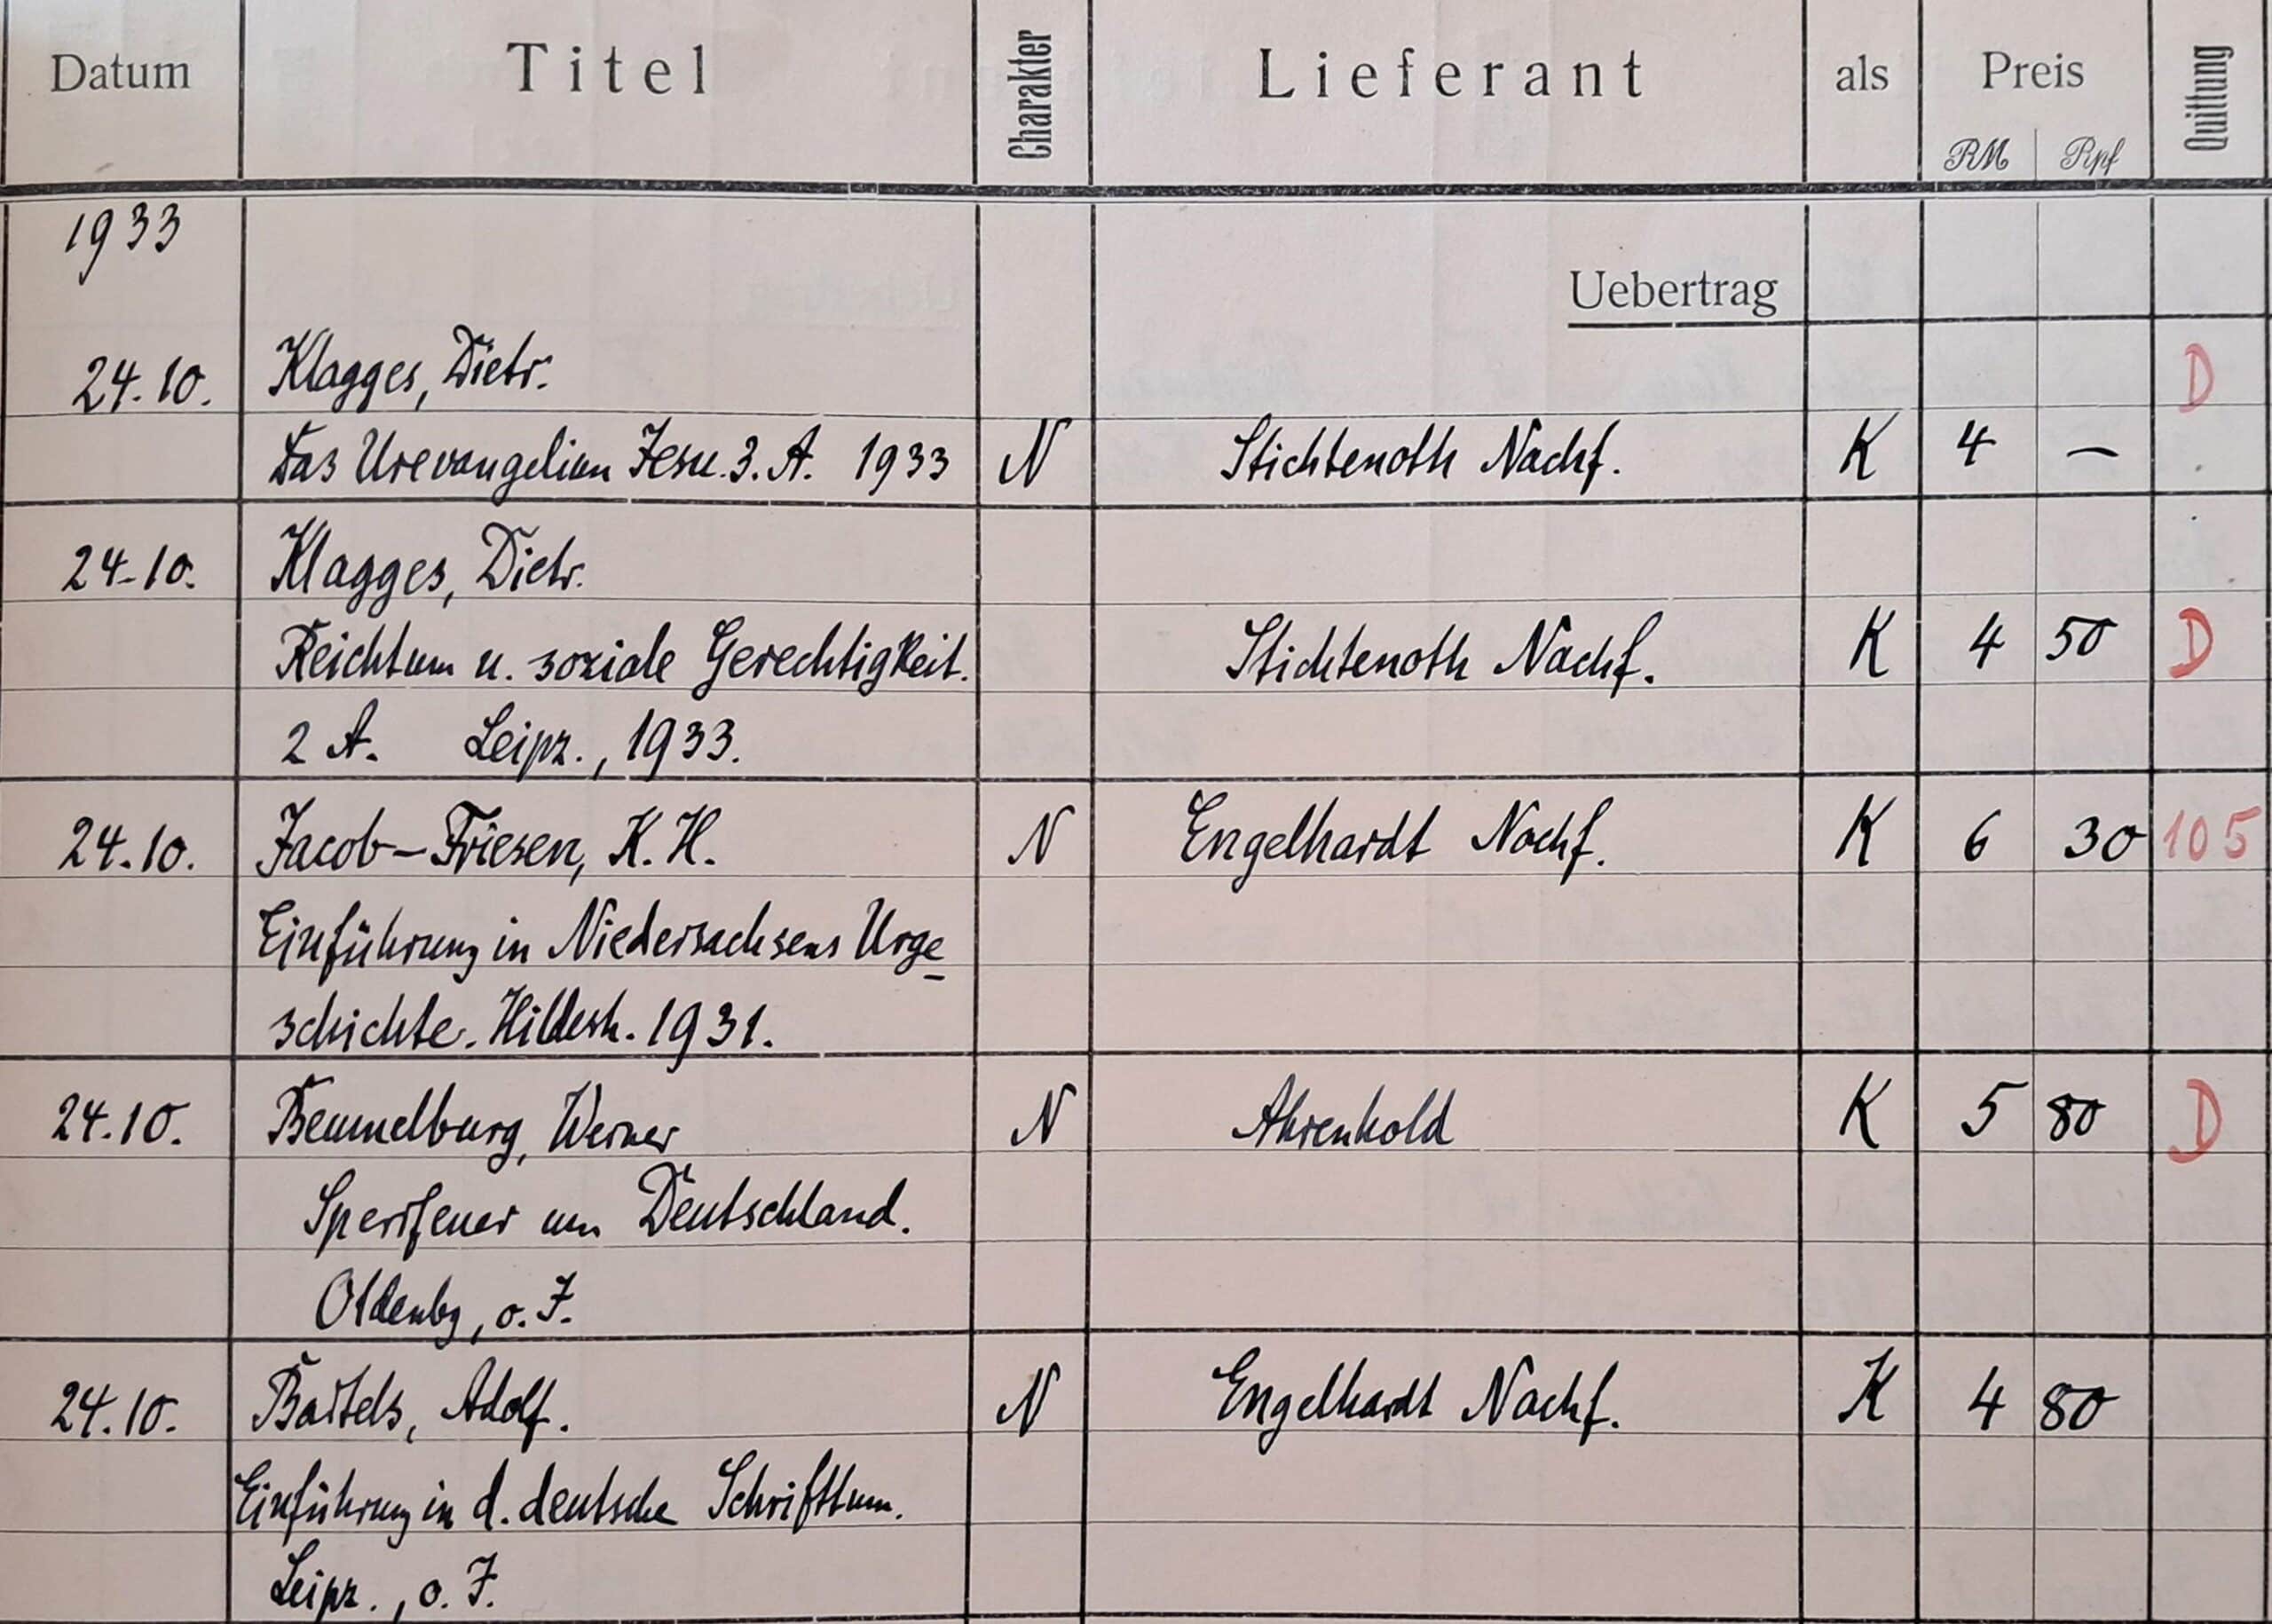 Datum Titel Charakter Lieferant als Preis Quittung
RM Rpf
1933
Uebertrag
24.10. Klagges, Dietr. D
Das Urevangelium Jesu. 3. A. 1933 N Stichtenoth Nachf. K 4 —
24.10. Klagges, Dietr.
Reichtum u. soziale Gerechtigkeit. Stichtenoth Nachf. K 4 50 D
2 A. Leipz., 1933.
24.10. Jacob-Friesen, K. H. N Engelhardt Nachf. K 6 30 105
Einführung in Niedersachsens Urge-
schichte. Hildesh. 1931.
24.10. Beumelburg, Werner N Ahrenhold K 5 80 D
Sperrfeuer um Deutschland.
Oldenbg, o. J.
24.10. Bartels, Adolf. N Engelhardt Nachf. K 4 80
Einführung in d. deutsche Schrifttum.
Leipz., o. J.